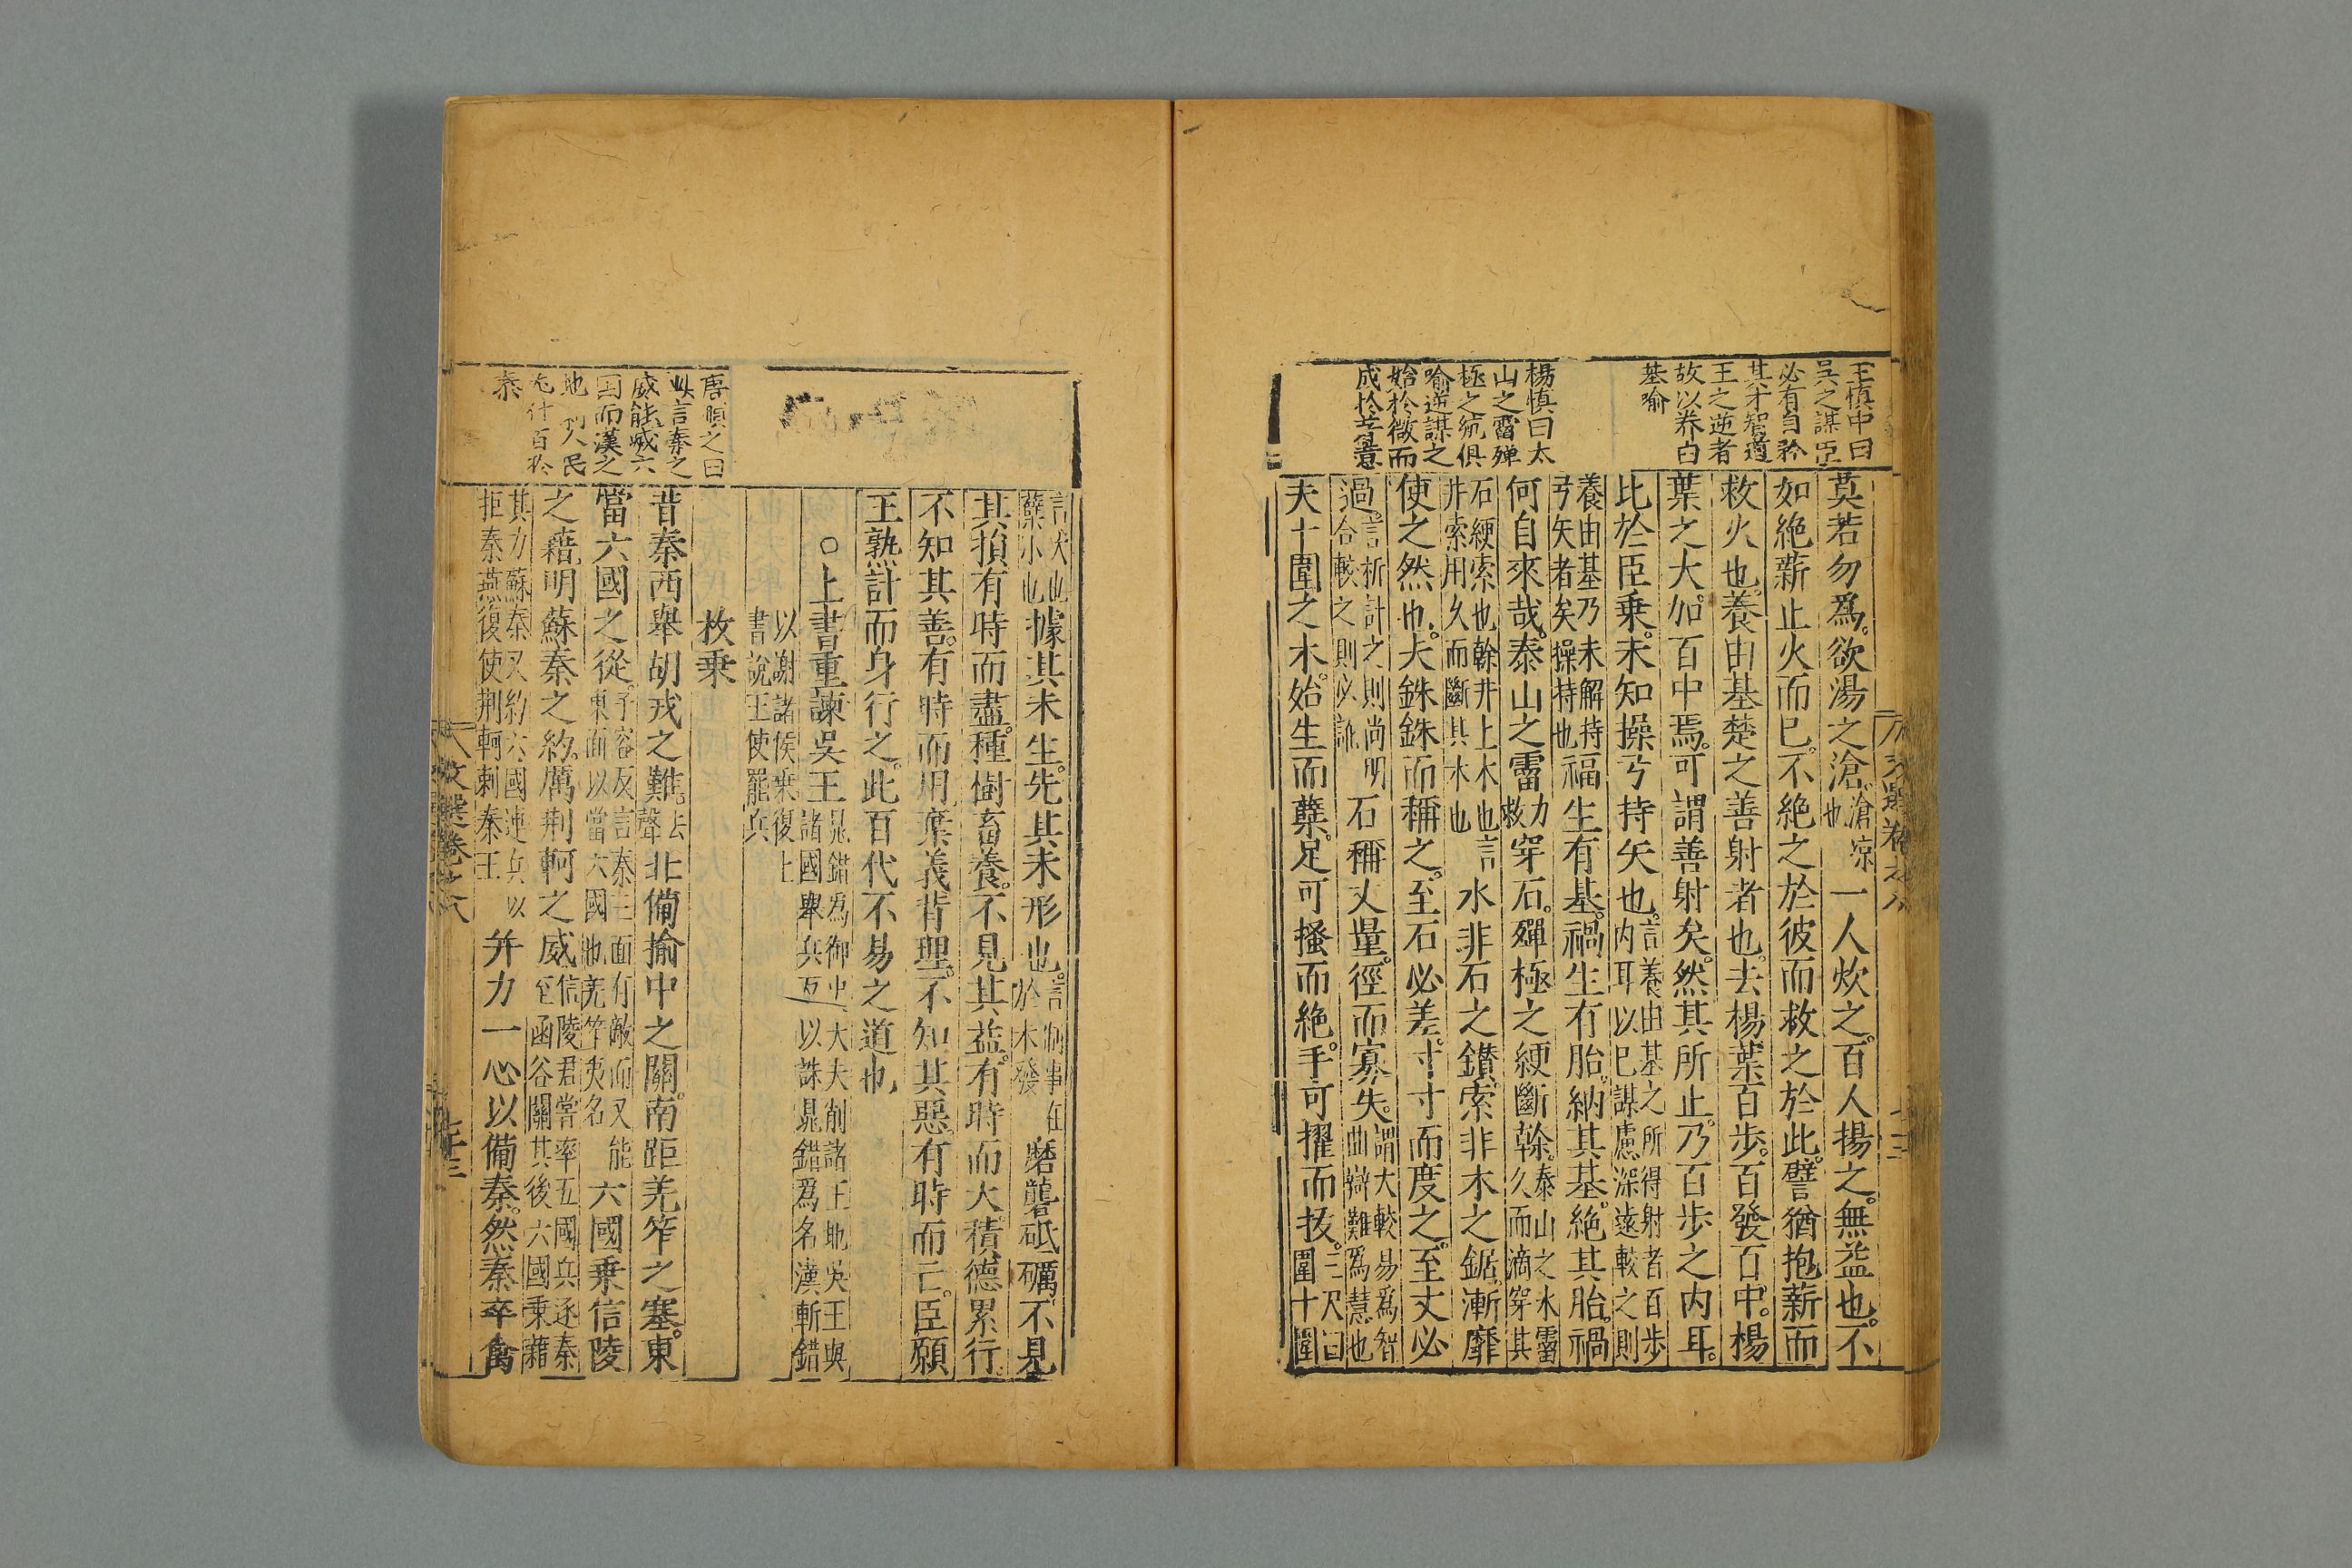 王慎中曰
吳之謀臣
必有自矜
其才智適
王之逆者
故以养由
基喻
楊慎曰太
山之霤殫
極之綆俱
喻逆謀之
始於微而
成於㳺意
莫若勿爲。欲湯之滄。滄凉也一人炊之。百人揚之。無益也。不
如絶薪止火而已。不絶之於彼而救之於此。譬猶抱薪而
救火也。養由基楚之善射者也。去楊葉百步。百發百中。楊
葉之大。加百中焉。可謂善射矣。然其所止。乃百步之内耳。
比於臣乗。未知操弓持矢也。言養由基之所得射者百步内耳以巳謀慮深遠較之則
養由基乃未解持弓矢者矣操持也福生有基。禍生有胎。納其基。絶其胎。禍
何自來哉。泰山之霤力救穿石。殫極之綆斷榦。泰山之水霤久而滴穿其
石綆索也榦井上木也言井索用久而斷其木也水非石之鑚。索非木之鋸。漸靡
使之然也。夫銖銖而稱之。至石必差。寸寸而度之。至丈必
過。言析計之則尚明合較之則必訛石稱丈量。徑而寡失。謂大較易爲智曲辯難爲慧也
夫十圍之木。始生而蘖。足可搔而絶。手可擢而抜。三尺曰圍十圍
文選卷之八
言大也蘖小也據其未生。先其未形也。言制事在於未發磨礱砥礪。不見
其損有時而盡。種樹畜養。不見其益。有時而大。積德累行。
不知其善。有時而用。棄義背理。不知其惡。有時而亡。臣願
王熟計而身行之。此百代不易之道也
○上書重諫吳王晁錯爲御史大夫削諸王地吳王與諸國舉兵西以誅晁錯爲名漢斬錯
以謝諸侯乗復上書說王使罷兵
枚乗
昔秦西舉胡戎之難。去聲北備揄中之關。南距羌筰之塞。東
當六國之從。子容反言秦三面有敵而又能東面以當六國也羌筰夷名六國乗信陵
之藉。明蘇秦之約。厲荆軻之威信陵君嘗率五國兵逐秦至函谷關其後六國乗藉
其力蘇秦又約六國連兵以拒秦燕復使荆軻刺秦王并力一心以備秦。然秦卒禽
唐順之曰
此言秦之
威能威六
国而漢之
地 則人民
尢什百於
秦
文選卷之八